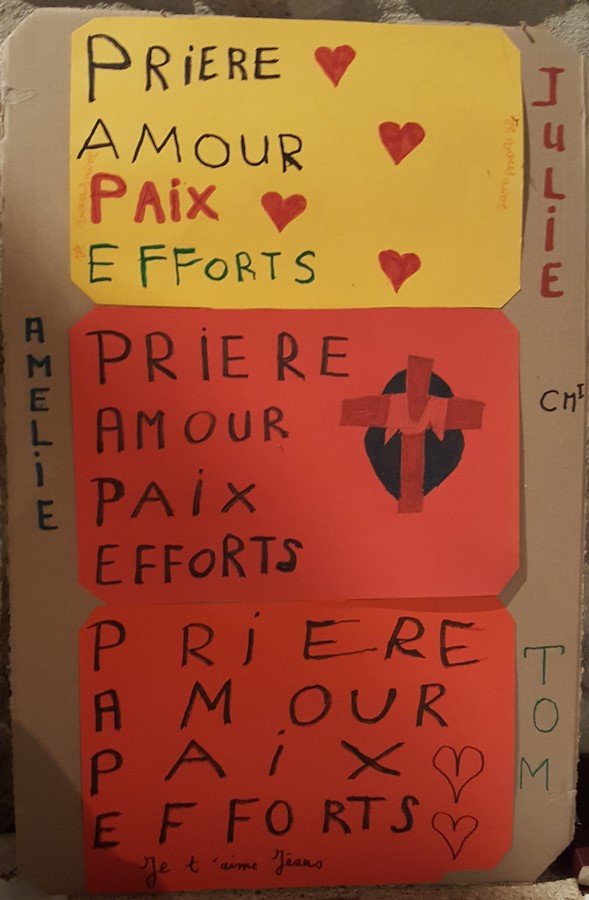 PRiERE
AMOUR
PAiX
EFFORTS
JULiE
AMELiE
PRIERE
AMOUR
PAiX
EFFORTS
CM1
PRiERE
AMOUR
PAiX
EFFORTS
Je t'aime Jésus
TOM